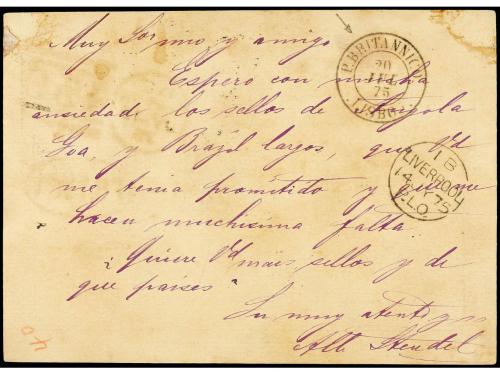 Muy Sor mio y amigo
P. BRITANNICO
20
JUL
75
LISBOA
Espero con mucha
ansiedad los sellos de Angola
Goa, y Brazil largos, que Vd
1 B
LIVERPOOL
14 JY 75
me tenia prometido y que me
hacen muchisima falta.
¿Quiere Vd mais sellos y de
que paises
Su muy atento
40